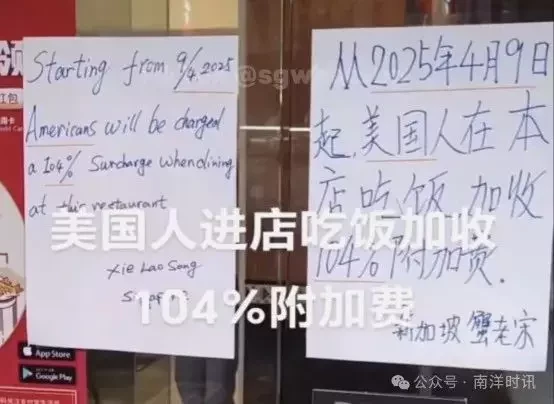 Starting from 9/4.2025
Americans will be charged
a 104% Surcharge when dining
at this restaurant
Xie Lao Song
Singapore
从2025年4月9日
起,美国人在本
店吃饭加收
104%附加费.
新加坡 蟹老宋
@sgw
美国人进店吃饭加收
104%附加费
红包
App Store
Google Play
公众号·南洋时讯